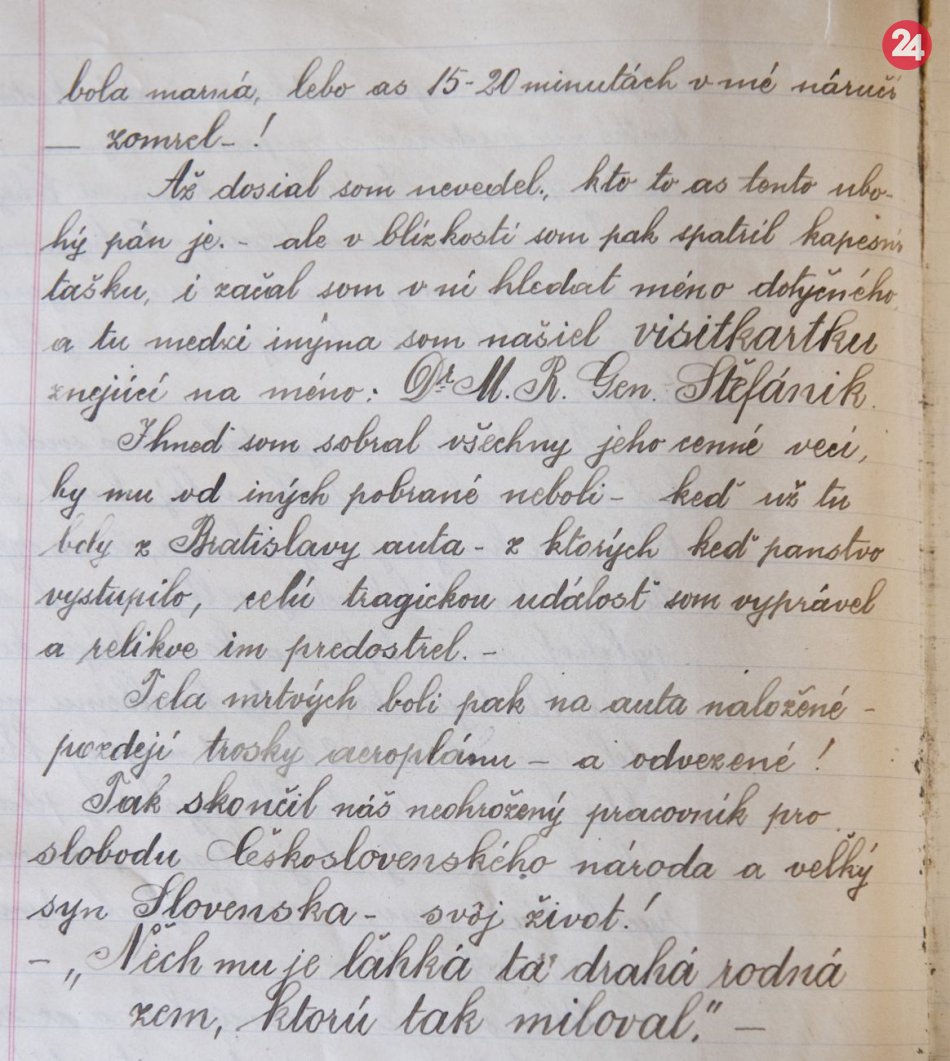 24
bola marná, lebo as 15-20 minutách v mé náručí
— zomrel - !
Až dosial som nevedel, kto to as tento ubo-
hý pán je. - ale v blízkosti som pak spatril kapesní
tašku, i začal som v ní hledat méno dotyčného,
a tu medzi inýma som našiel visitkartku
znejúcí na méno: Dr. M. R. Gen. Štěfánik.
Ihneď som sobral všechny jeho cenné veci,
by mu od iných pobrané neboli - keď už tu
boly z Bratislavy auta - z ktorých keď panstvo
vystupilo, celú tragickou událosť som vyprável
a relikve im predostrel. -
Tela mrtvých boli pak na auta naložéné -
pozdejí trosky aeroplánu - a odvezené !
Tak skončil náš neohrožený pracovník pro
slobodu Československého národa a velký
syn Slovenska - svôj život!
- „Něch mu je lăhká tá drahá rodná
zem, ktorú tak miloval." -